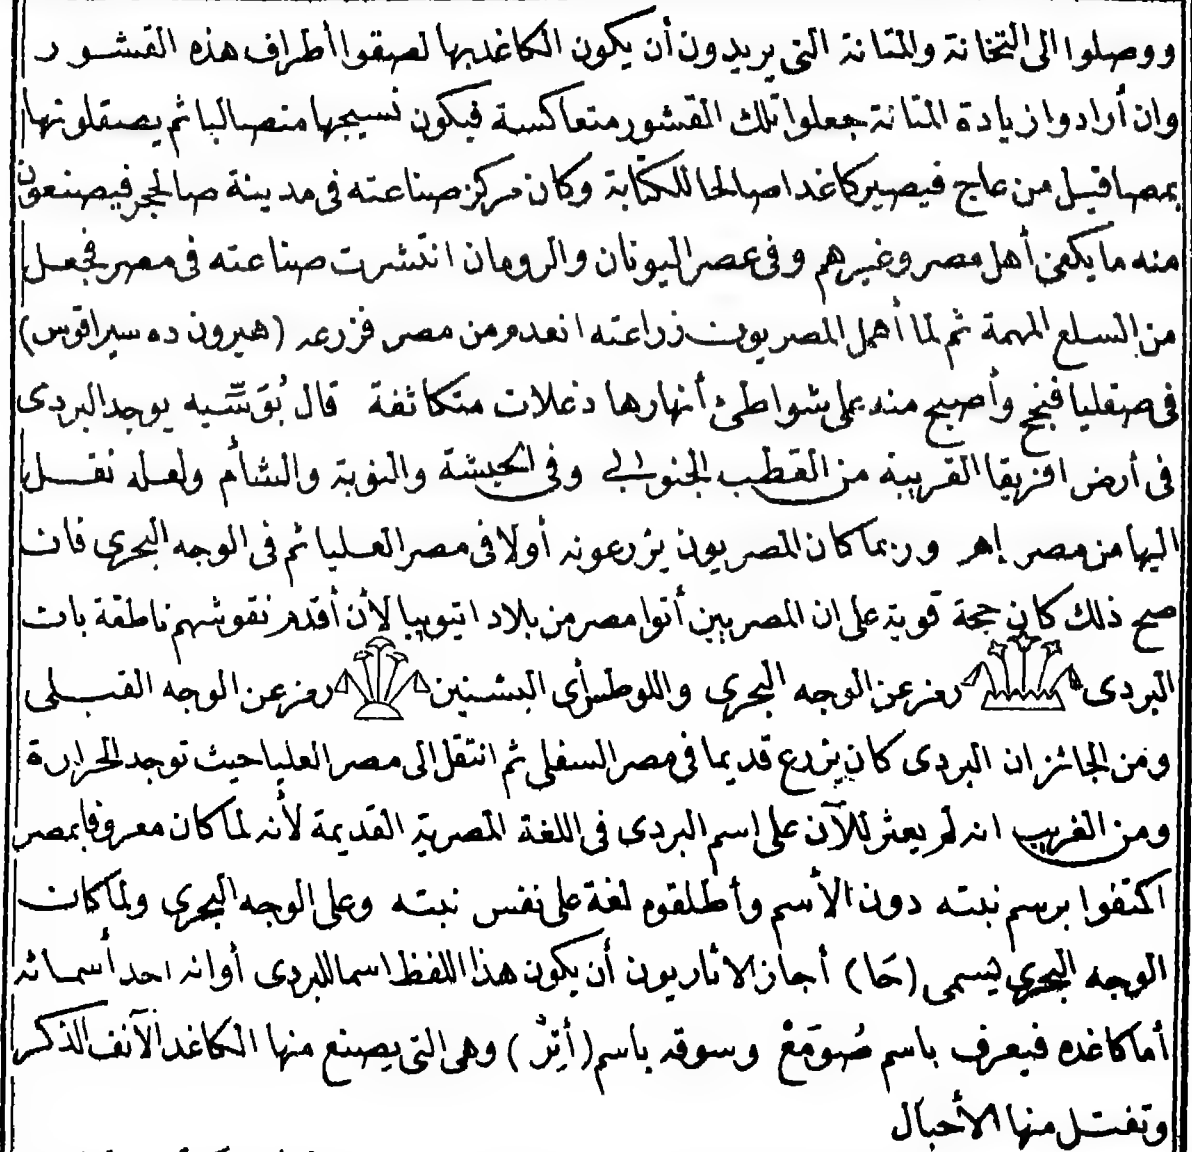 ووصلوا الى التخانة والمتانة التى يريدون أن يكون الكاغد بها لصقوا أطراف هذه القشور
وان أرادوا زيادة المتانة جعلوا تلك القشور متعاكسة فيكون نسيجها متصالبا ثم يصقلونها
بمصاقيل من عاج فيصير كاغدا صالحا للكتابة وكان مركز صناعته فى مدينة صالحجر فيصنعون
منه ما يكفى أهل مصر وغيرهم وفى عصر اليونان والرومان انتشرت صناعته فى مصر فجعل
من السلع المهمة ثم لما أهمل المصريون زراعته انعدم من مصر فزرعه (هيرون ده سيراقوس)
فى صقليا فنجح وأصبح منه على شواطئ أنهارها دغلات متكاثفة قال بُوَسِّيه يوجد البردى
فى أرض افريقا القريبة من القطب الجنوبى وفى الحبشة والنوبة والشأم ولعله نقل
اليها من مصر إهـ وربما كان المصريون يزرعونه أولا فى مصر العليا ثم فى الوجه البحرى فان
صح ذلك كان حجة قوية على ان المصريين أتوا مصر من بلاد اتيوبيا لأن أقدم نقوشهم ناطقة بان
البردى رمز عن الوجه البحرى واللوطس أى البشنين رمز عن الوجه القبلى
ومن الجائز ان البردى كان يزرع قديما فى مصر السفلى ثم انتقل الى مصر العليا حيث توجد الحرارة
ومن الغريب انه لم يعثر للآن على اسم البردى فى اللغة المصرية القديمة لأنه لما كان معروفا بمصر
اكتفوا برسم نبته دون الأسم وأطلقوه لغة على نفس نبته وعلى الوجه البحرى ولما كان
الوجه البحرى يسمى (حَا) أجاز الاثاريون أن يكون هذا اللفظ اسما للبردى أو انه احد أسمائه
أما كاغده فيعرف باسم صُومَعْ وسوقه باسم (أتِرْ) وهى التى يصنع منها الكاغد الآنف الذكر
وتفتل منها الأحبال